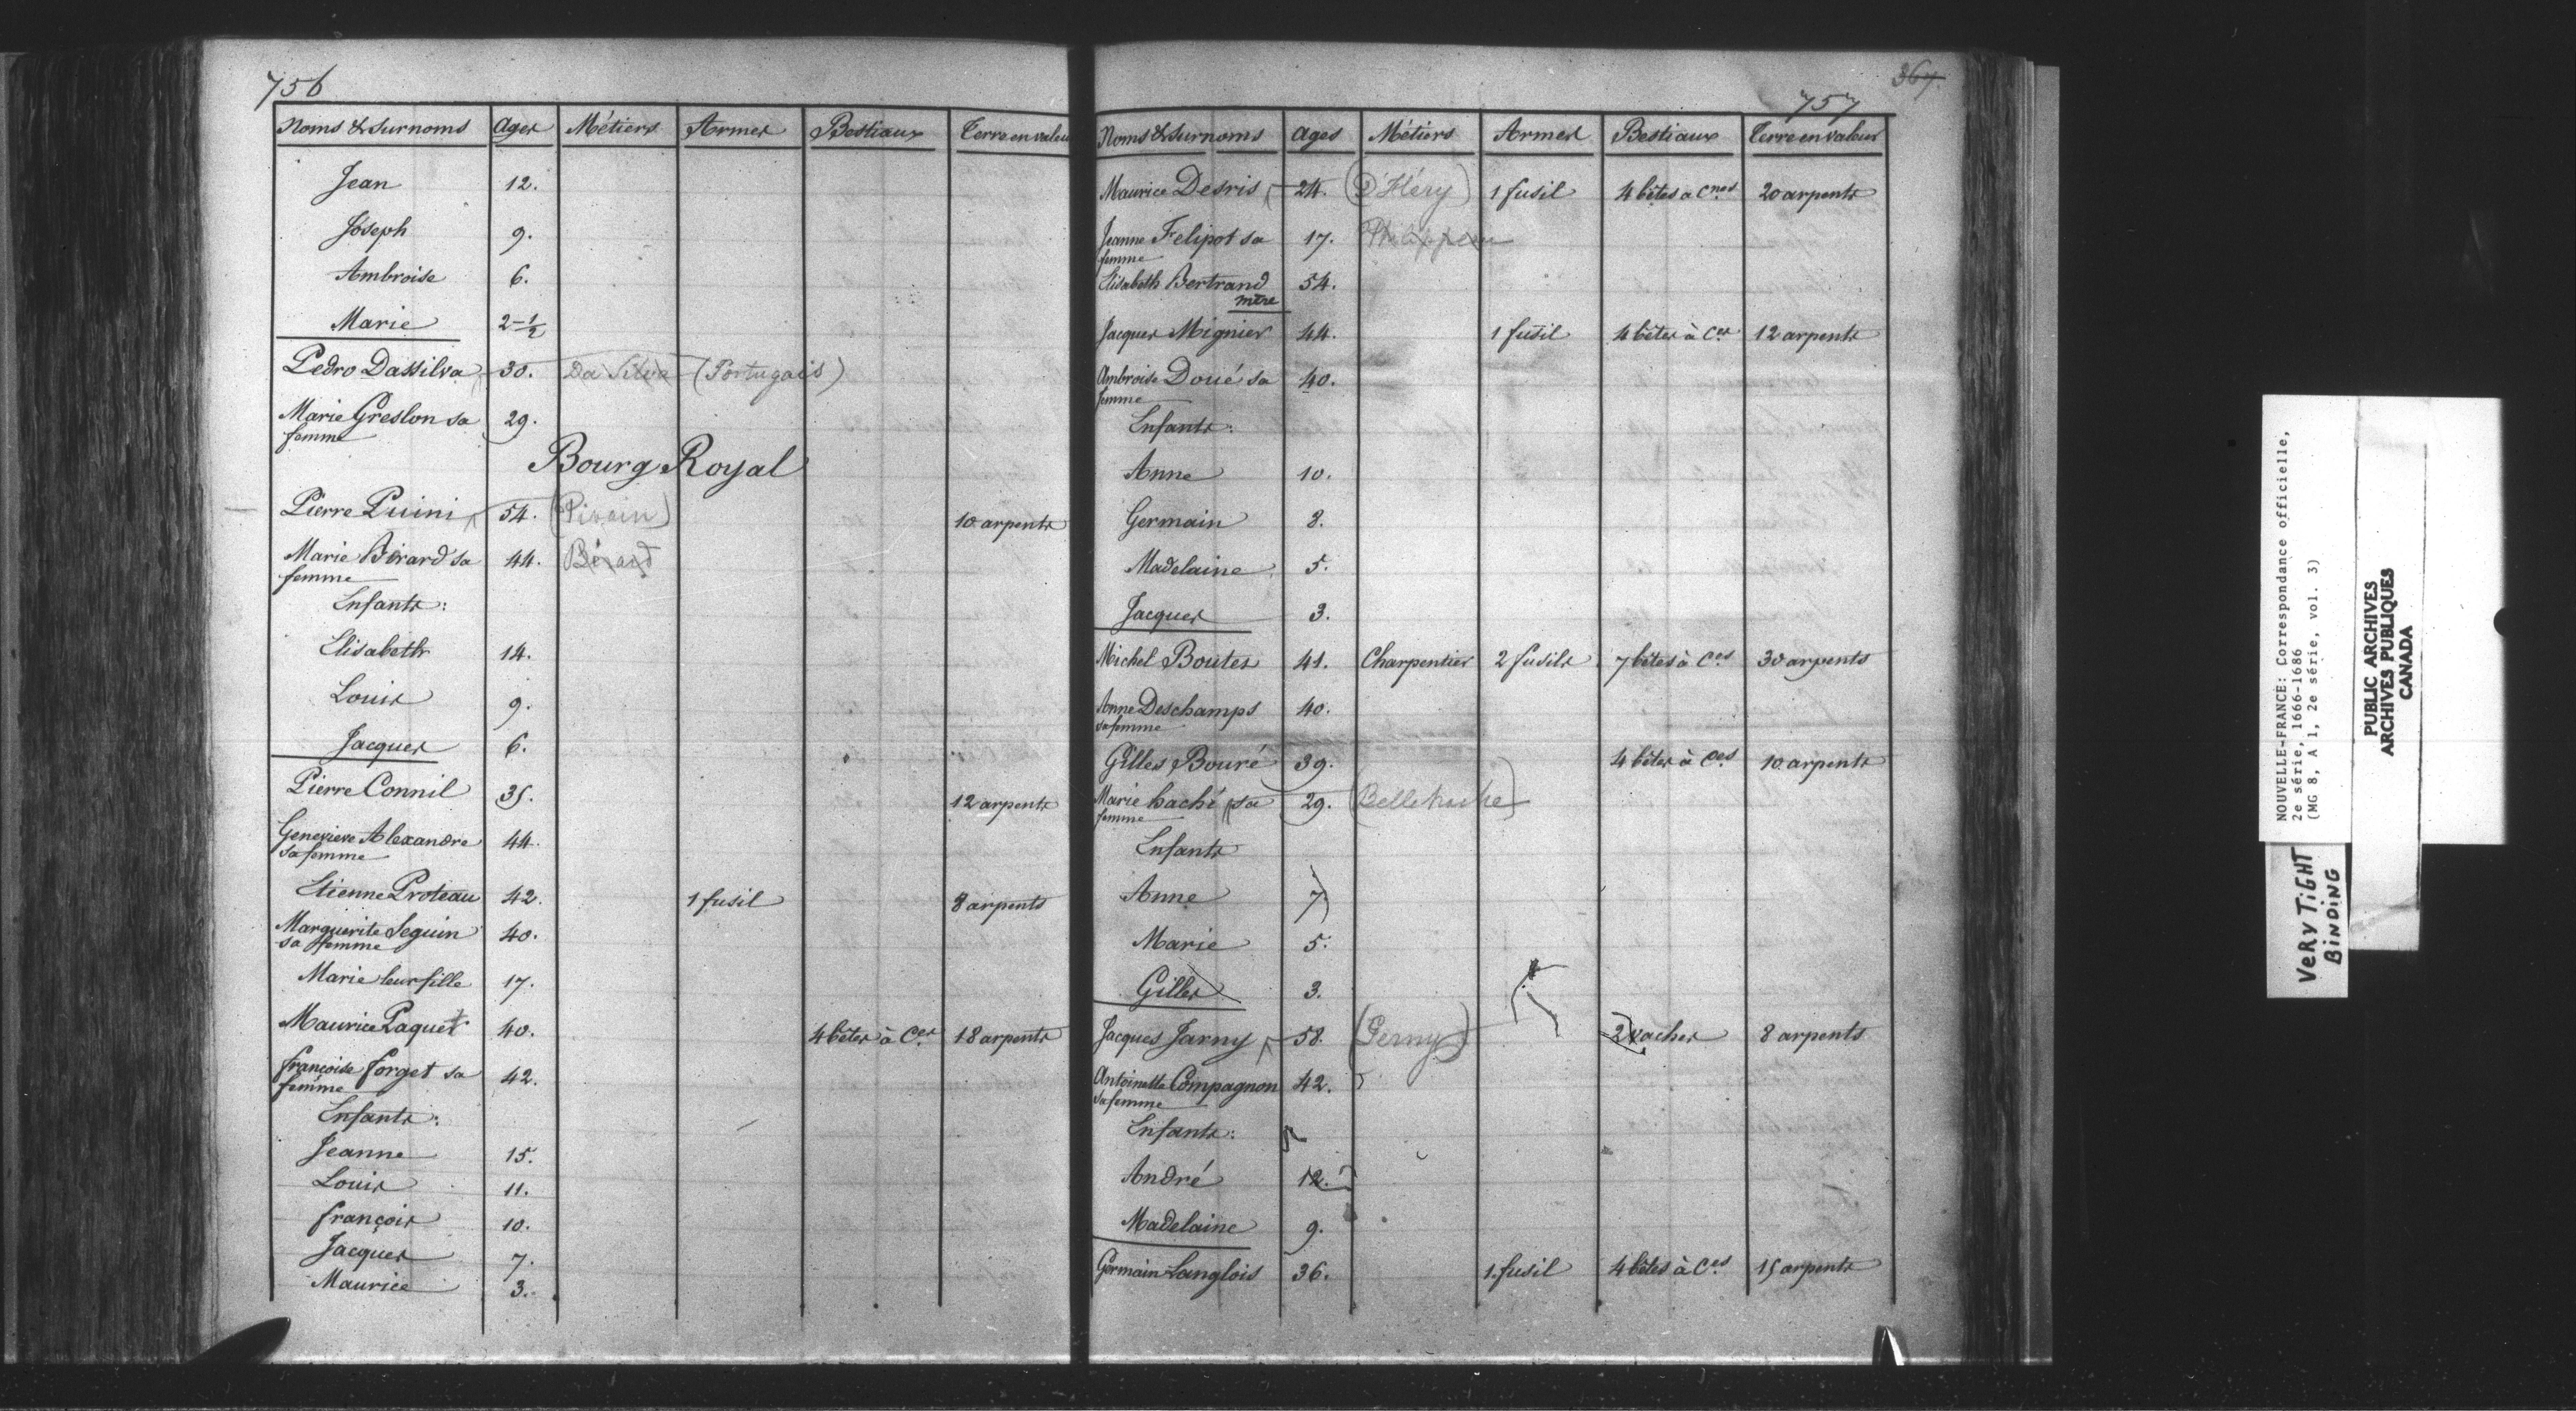 756
Noms & Surnoms Ages Métiers Armes Bestiaux Terre en valeu
Jean 12.
Joseph 9.
Ambroise 6.
Marie 2-1/2
Pedro Dassilva 30. Da Silva (Portugais)
Marie Greslon sa 29.
femme
Bourg Royal
Pierre Puini 54. (Pivain) 10 arpents
Marie Birard sa 44. Bérard
femme
Enfants:
Elisabeth 14.
Louis 9.
Jacques 6.
Pierre Connil 35. 12 arpents
Genevieve Alexandre 44.
sa femme
Etienne Proteau 42. 1 fusil 8 arpents
Marguerite Seguin 40.
sa femme
Marie leur fille 17.
Maurice Paquet 40. 4 bêtes à Ces 18 arpents
françoise forget sa 42.
femme
Enfants:
Jeanne 15.
Louis 11.
françois 10.
Jacques 7.
Maurice 3.
367
757
Noms & Surnoms Ages Métiers Armes Bestiaux Terre en valeur
Maurice Desris 24. (D'Héry) 1 fusil 4 bêtes a Cnes 20 arpents
Jeanne Felipot sa 17. Philippeau
femme
Elisabeth Bertrand 54.
mère
Jacques Mignier 44. 1 fusil 4 bêtes à Ces 12 arpents
Ambroise Doué sa 40.
femme
Enfants:
Anne 10.
Germain 8.
Madelaine 5.
Jacques 3.
Michel Boutes 41. Charpentier 2 fusils 7 bêtes à Ces 30 arpents
Anne Deschamps 40.
sa femme
Gilles Bouré 39. 4 bêtes à Ces 10 arpents
Marie haché sa 29. (Bellehache)
femme
Enfants
Anne 7
Marie 5.
Gilles 3.
Jacques Jarny 58. (Gerny) 2 vaches 8 arpents
Antoinette Compagnon 42.
sa femme
Enfants:
André 12.
Madelaine 9.
Germain Langlois 36. 1 fusil 4 bêtes à Ces 15 arpents
NOUVELLE-FRANCE: Correspondance officielle,
2e série, 1666-1686
(MG 8, A 1, 2e série, vol. 3)
PUBLIC ARCHIVES
ARCHIVES PUBLIQUES
CANADA
VERY TIGHT
BINDING